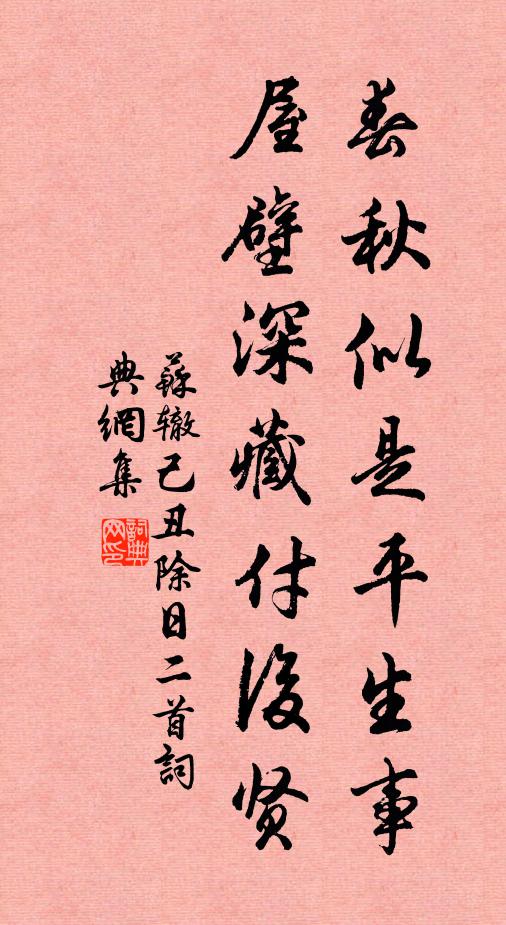 春秋似是平生事
屋壁深藏付後贤
蘇辙己丑除日二首詞
典網集
詞典网印